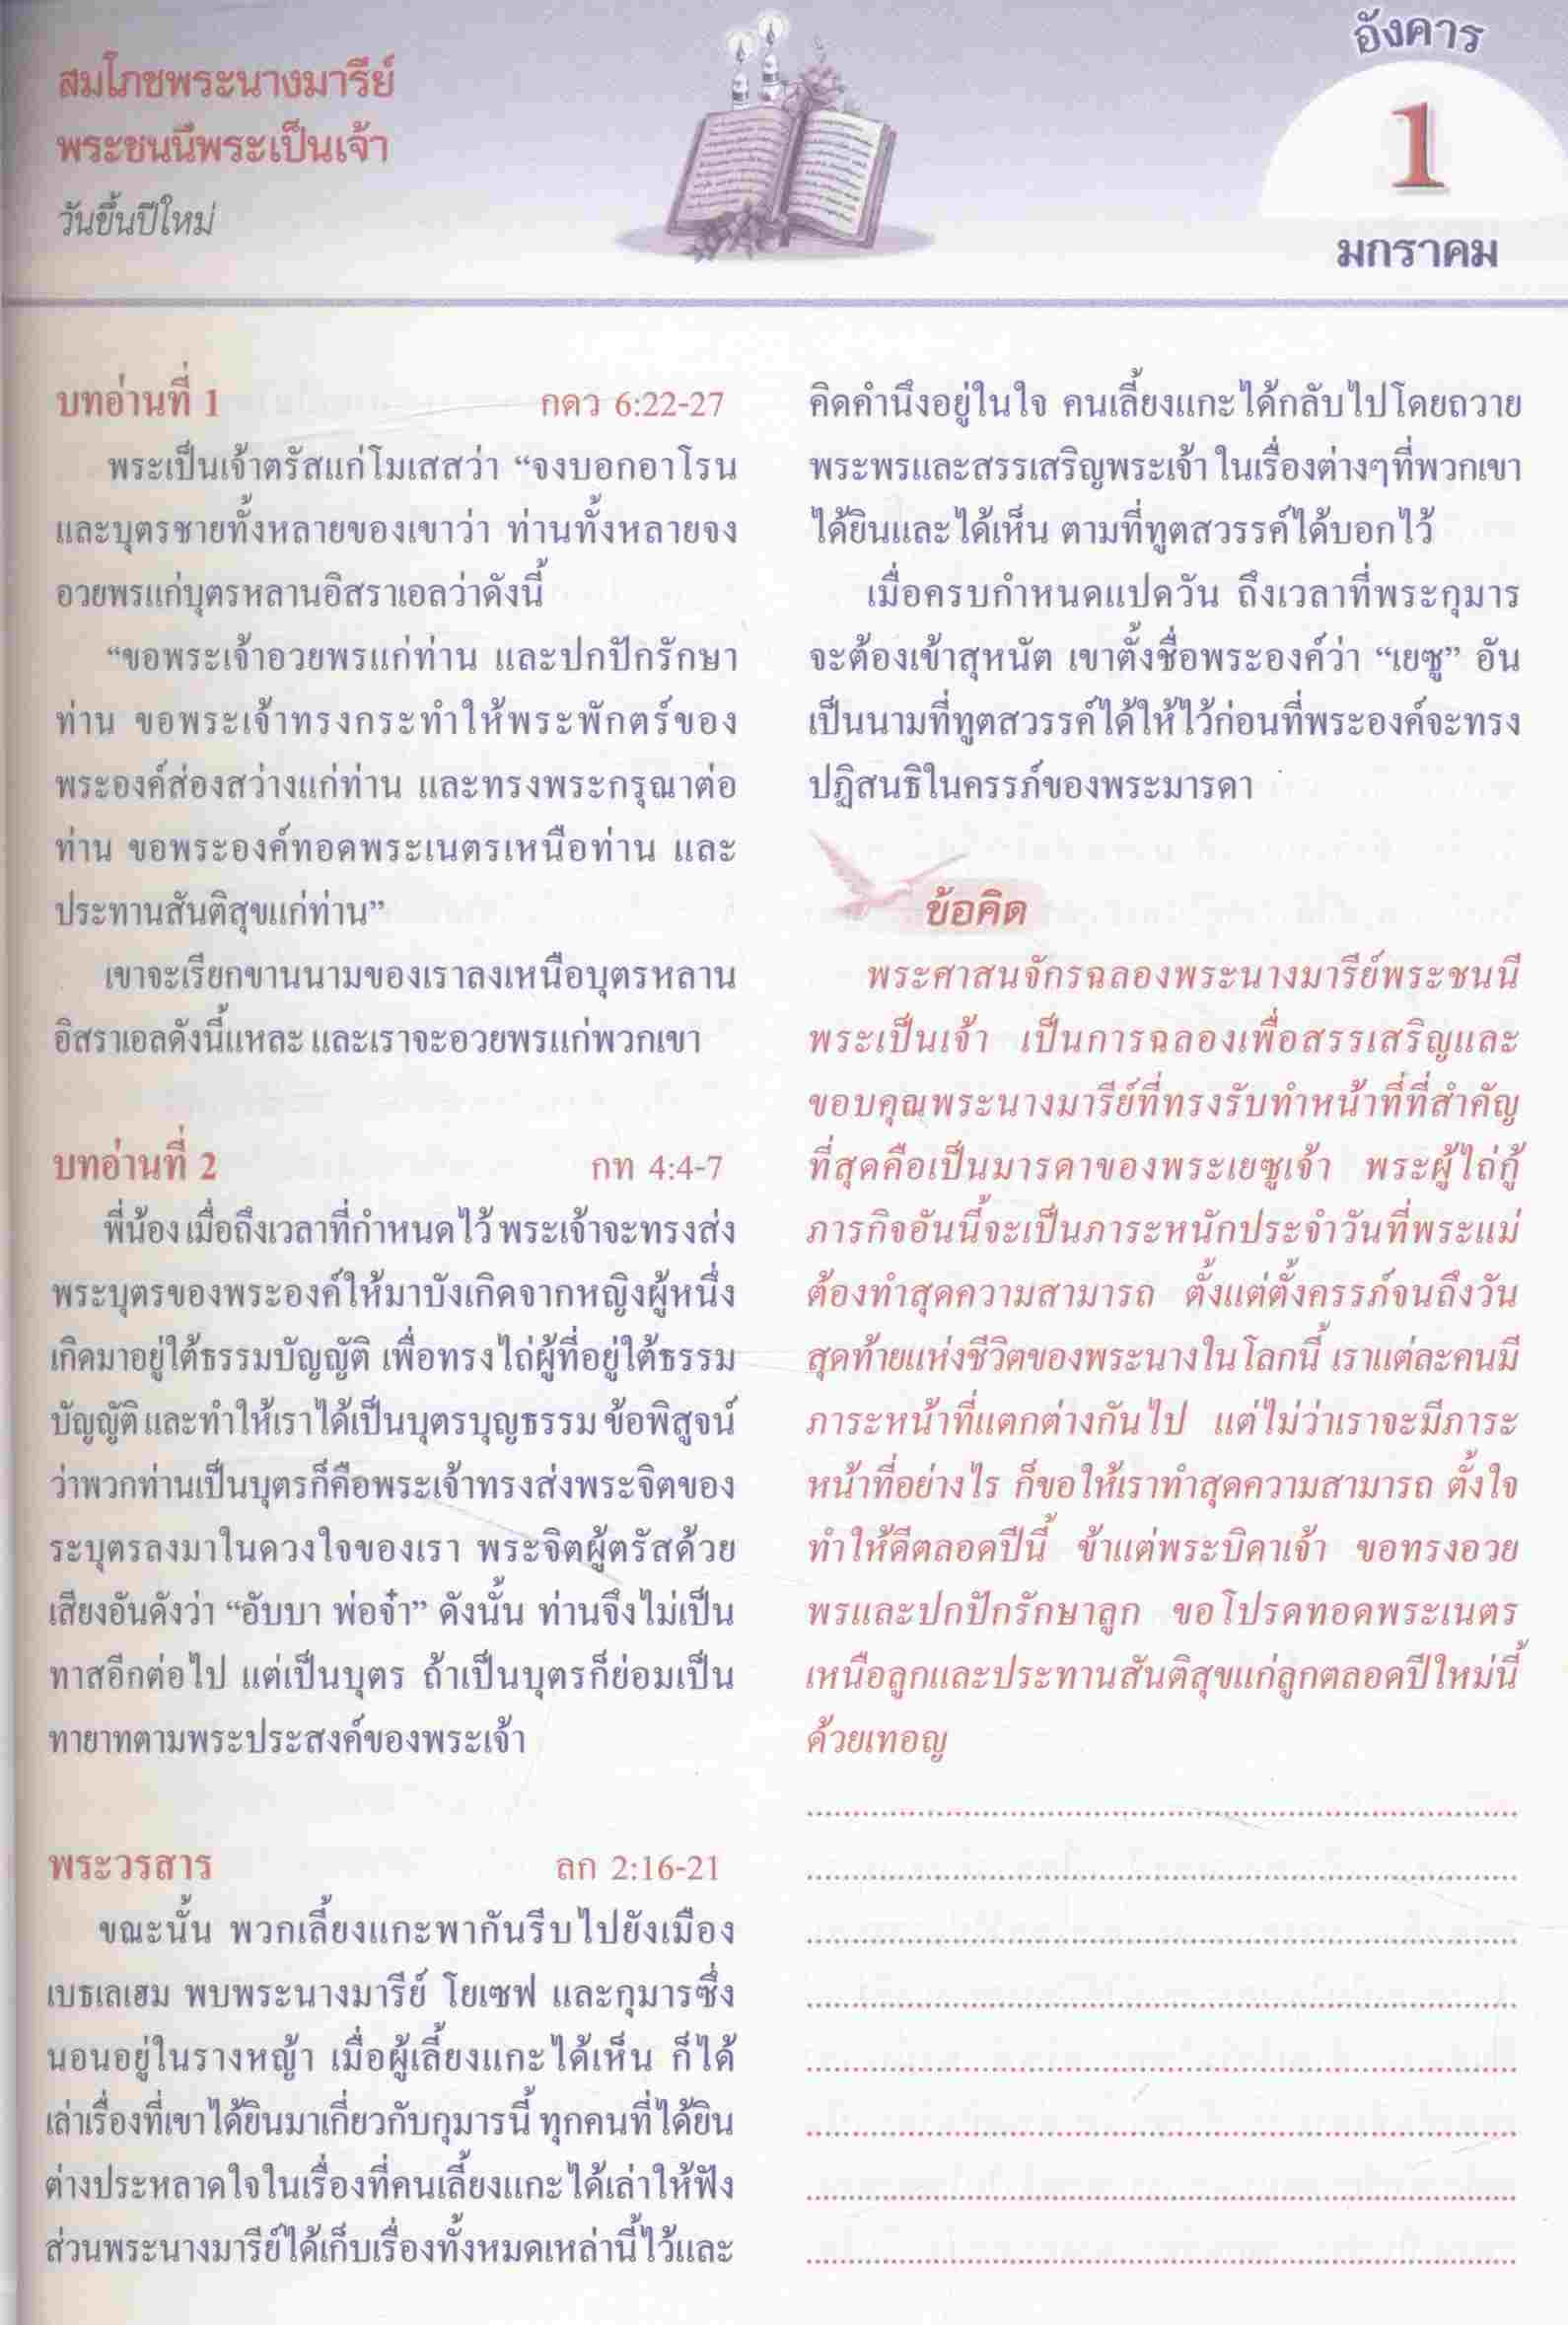 สมโภชพระนางมารีย์
พระชนนีพระเป็นเจ้า
วันขึ้นปีใหม่
อังคาร
1
มกราคม
บทอ่านที่ 1 กดว 6:22-27
พระเป็นเจ้าตรัสแก่โมเสสว่า “จงบอกอาโรน
และบุตรชายทั้งหลายของเขาว่า ท่านทั้งหลายจง
อวยพรแก่บุตรหลานอิสราเอลว่าดังนี้
“ขอพระเจ้าอวยพรแก่ท่าน และปกปักรักษา
ท่าน ขอพระเจ้าทรงกระทำให้พระพักตร์ของ
พระองค์ส่องสว่างแก่ท่าน และทรงพระกรุณาต่อ
ท่าน ขอพระองค์ทอดพระเนตรเหนือท่าน และ
ประทานสันติสุขแก่ท่าน”
เขาจะเรียกขานนามของเราลงเหนือบุตรหลาน
อิสราเอลดังนี้แหละ และเราจะอวยพรแก่พวกเขา
บทอ่านที่ 2 กท 4:4-7
พี่น้อง เมื่อถึงเวลาที่กำหนดไว้ พระเจ้าจะทรงส่ง
พระบุตรของพระองค์ให้มาบังเกิดจากหญิงผู้หนึ่ง
เกิดมาอยู่ใต้ธรรมบัญญัติ เพื่อทรงไถ่ผู้ที่อยู่ใต้ธรรม
บัญญัติ และทำให้เราได้เป็นบุตรบุญธรรม ข้อพิสูจน์
ว่าพวกท่านเป็นบุตรก็คือพระเจ้าทรงส่งพระจิตของ
ระบุตรลงมาในดวงใจของเรา พระจิตผู้ตรัสด้วย
เสียงอันดังว่า “อับบา พ่อจ๋า” ดังนั้น ท่านจึงไม่เป็น
ทาสอีกต่อไป แต่เป็นบุตร ถ้าเป็นบุตรก็ย่อมเป็น
ทายาทตามพระประสงค์ของพระเจ้า
พระวรสาร ลก 2:16-21
ขณะนั้น พวกเลี้ยงแกะพากันรีบไปยังเมือง
เบธเลเฮม พบพระนางมารีย์ โยเซฟ และกุมารซึ่ง
นอนอยู่ในรางหญ้า เมื่อผู้เลี้ยงแกะได้เห็น ก็ได้
เล่าเรื่องที่เขาได้ยินมาเกี่ยวกับกุมารนี้ ทุกคนที่ได้ยิน
ต่างประหลาดใจในเรื่องที่คนเลี้ยงแกะได้เล่าให้ฟัง
ส่วนพระนางมารีย์ได้เก็บเรื่องทั้งหมดเหล่านี้ไว้และ
คิดคำนึงอยู่ในใจ คนเลี้ยงแกะได้กลับไปโดยถวาย
พระพรและสรรเสริญพระเจ้า ในเรื่องต่างๆที่พวกเขา
ได้ยินและได้เห็น ตามที่ทูตสวรรค์ได้บอกไว้
เมื่อครบกำหนดแปดวัน ถึงเวลาที่พระกุมาร
จะต้องเข้าสุหนัต เขาตั้งชื่อพระองค์ว่า “เยซู” อัน
เป็นนามที่ทูตสวรรค์ได้ให้ไว้ก่อนที่พระองค์จะทรง
ปฏิสนธิในครรภ์ของพระมารดา
ข้อคิด
พระศาสนจักรฉลองพระนางมารีย์พระชนนี
พระเป็นเจ้า เป็นการฉลองเพื่อสรรเสริญและ
ขอบคุณพระนางมารีย์ที่ทรงรับทำหน้าที่ที่สำคัญ
ที่สุดคือเป็นมารดาของพระเยซูเจ้า พระผู้ไถ่กู้
ภารกิจอันนี้จะเป็นภาระหนักประจำวันที่พระแม่
ต้องทำสุดความสามารถ ตั้งแต่ตั้งครรภ์จนถึงวัน
สุดท้ายแห่งชีวิตของพระนางในโลกนี้ เราแต่ละคนมี
ภาระหน้าที่แตกต่างกันไป แต่ไม่ว่าเราจะมีภาระ
หน้าที่อย่างไร ก็ขอให้เราทำสุดความสามารถ ตั้งใจ
ทำให้ดีตลอดปีนี้ ข้าแต่พระบิดาเจ้า ขอทรงอวย
พรและปกปักรักษาลูก ขอโปรดทอดพระเนตร
เหนือลูกและประทานสันติสุขแก่ลูกตลอดปีใหม่นี้
ด้วยเทอญ